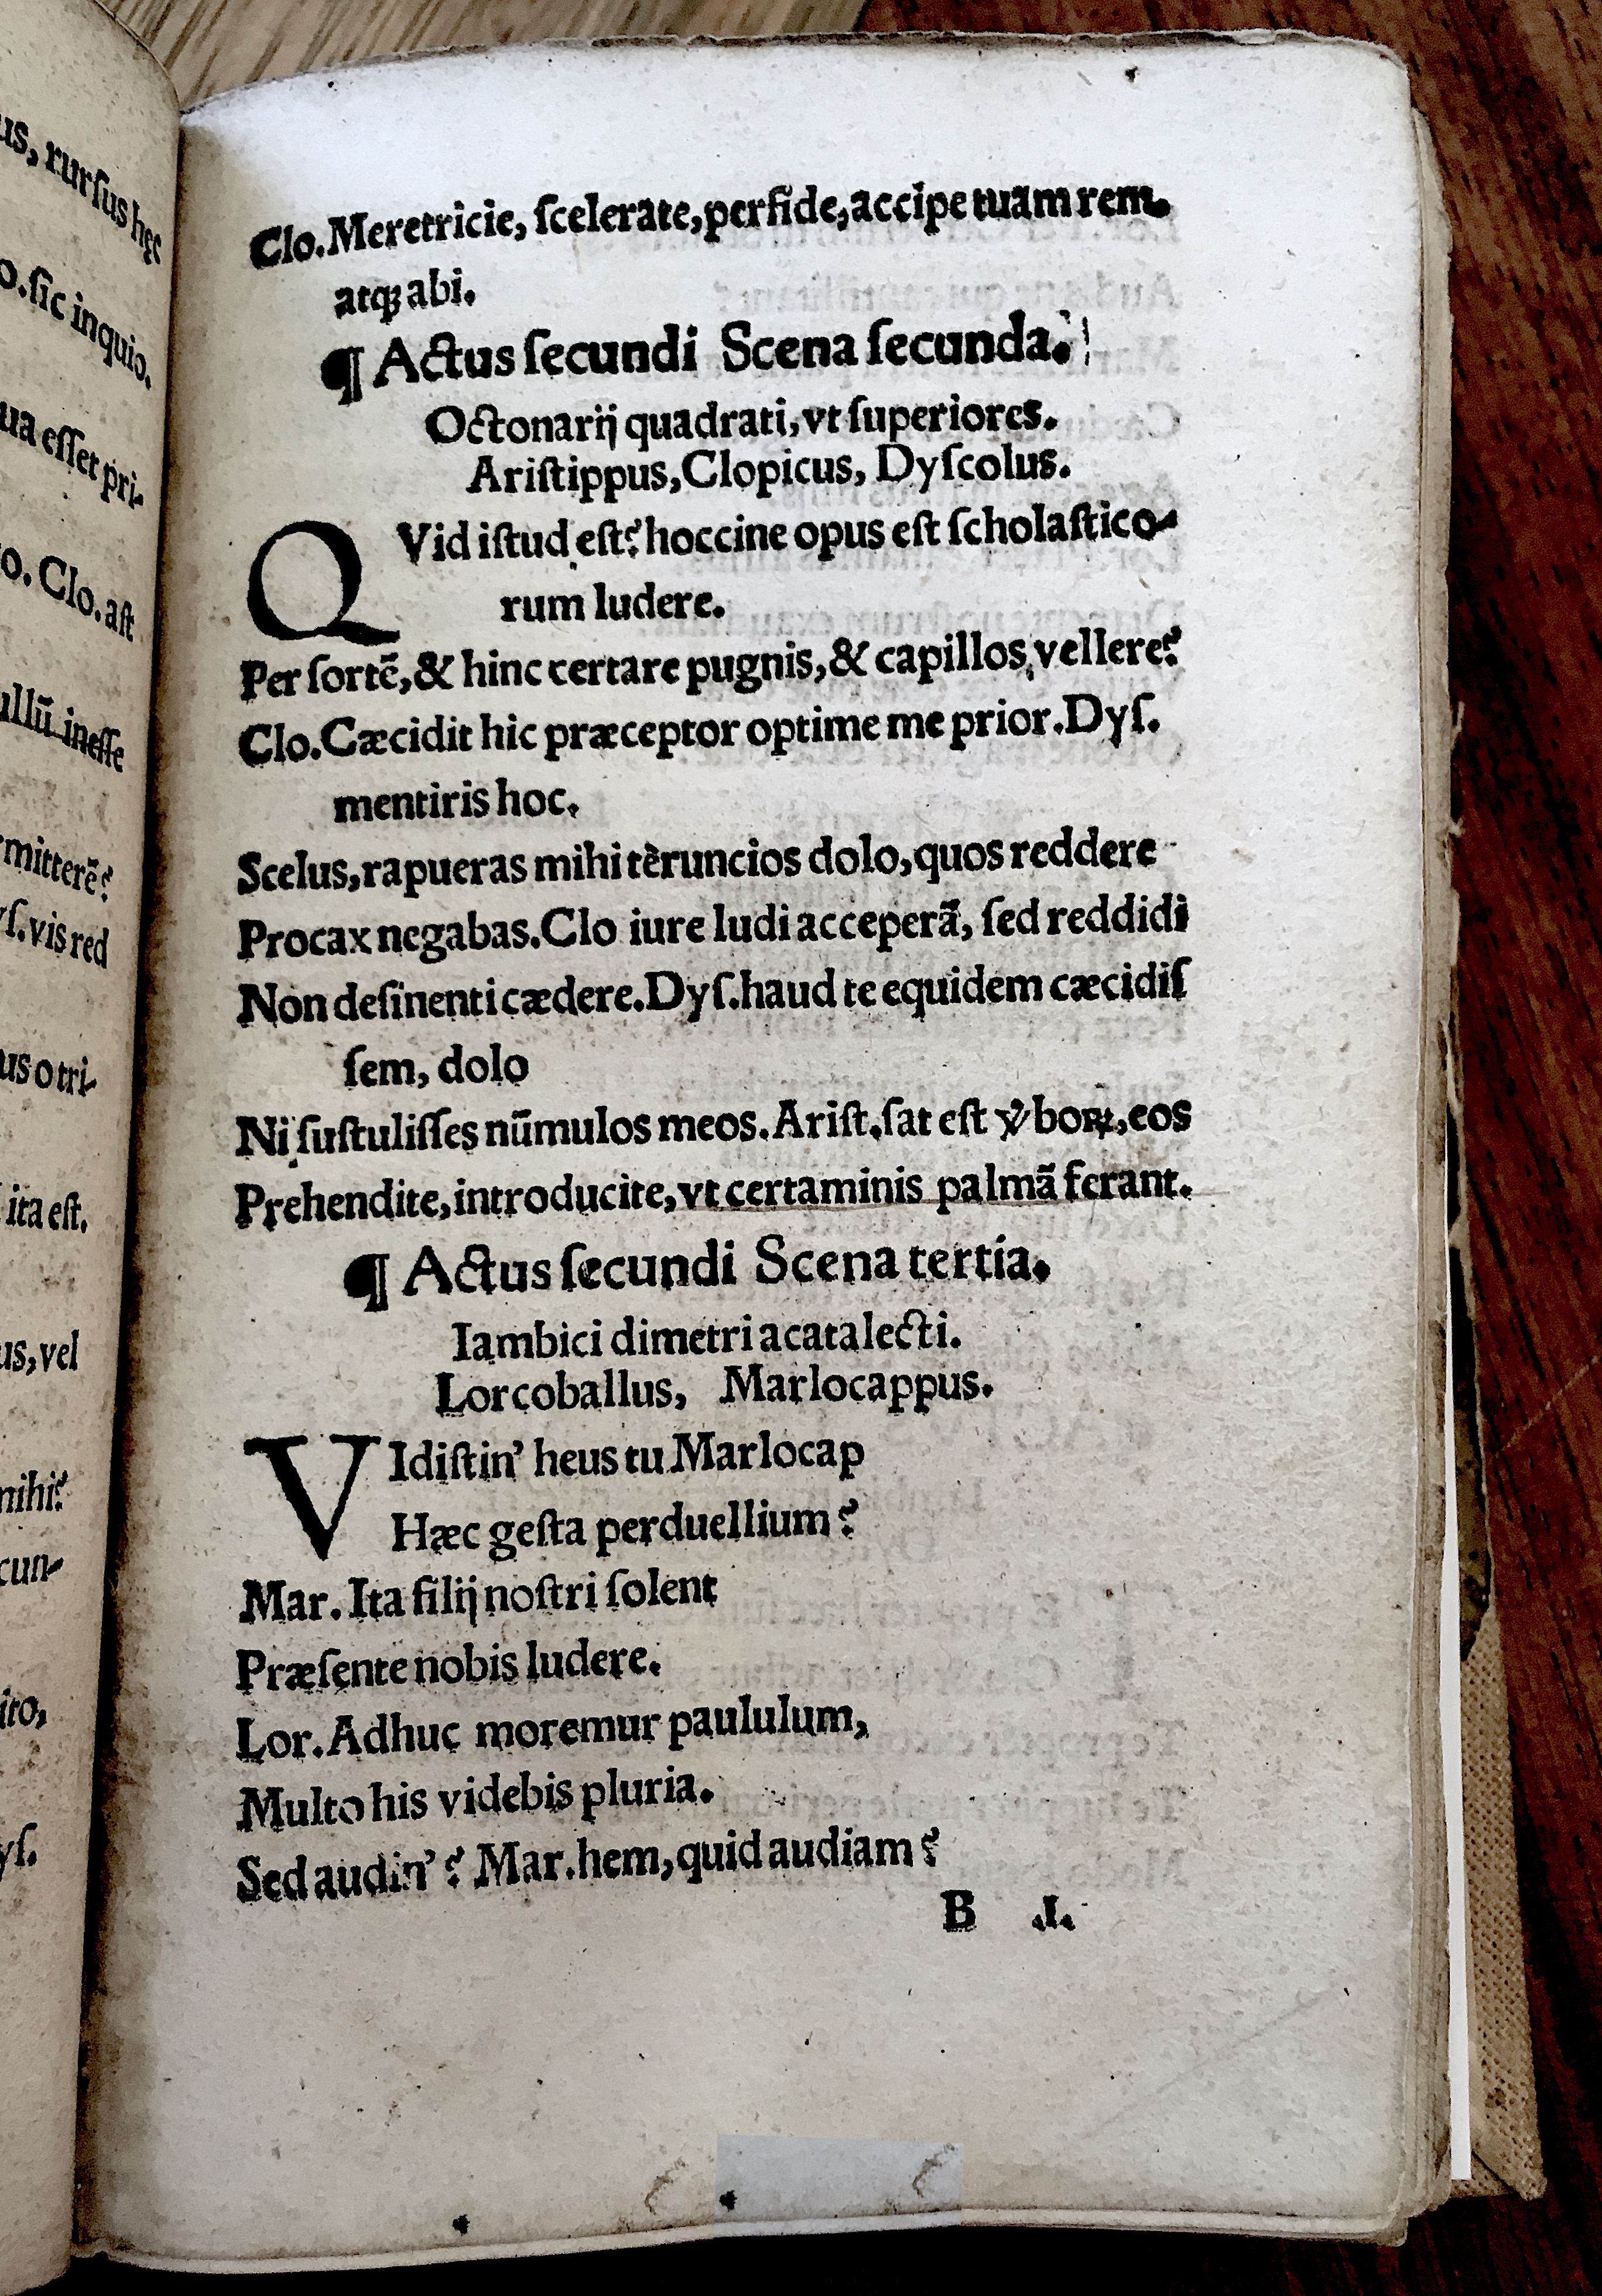 us, rurſus hęc
o. ſic inquio.
ua eſſet pri-
o. Clo. aſt
ullū ineſſe
mitterē?
yſ. vis red
us o tri-
ita eſt.
us, vel
mihi?
cun-
ito,
yſ.
Clo. Meretricie, ſcelerate, perfide, accipe tuam rem.
atqꝫ abi.
¶ Actus ſecundi Scena ſecunda.
Octonarij quadrati, vt ſuperiores.
Ariſtippus, Clopicus, Dyſcolus.
QVid iſtud eſt? hoccine opus eſt ſcholaſtico-
rum ludere.
Per ſortē, & hinc certare pugnis, & capillos vellere?
Clo. Cæcidit hic præceptor optime me prior. Dyſ.
mentiris hoc.
Scelus, rapueras mihi tèruncios dolo, quos reddere
Procax negabas. Clo iure ludi acceperā, ſed reddidi
Non deſinenti cædere. Dyſ. haud te equidem cæcidiſ
ſem, dolo
Ni ſuſtuliſſes nūmulos meos. Ariſt. ſat eſt v̉boꝝ, eos
Prehendite, introducite, vt certaminis palmā ferant.
¶ Actus ſecundi Scena tertia.
Iambici dimetri acatalecti.
Lorcoballus, Marlocappus.
VIdiſtin' heus tu Marlocap
Hæc geſta perduellium?
Mar. Ita filij noſtri ſolent
Præſente nobis ludere.
Lor. Adhuc moremur paululum,
Multo his videbis pluria.
Sed audin'? Mar. hem, quid audiam?
B .I.